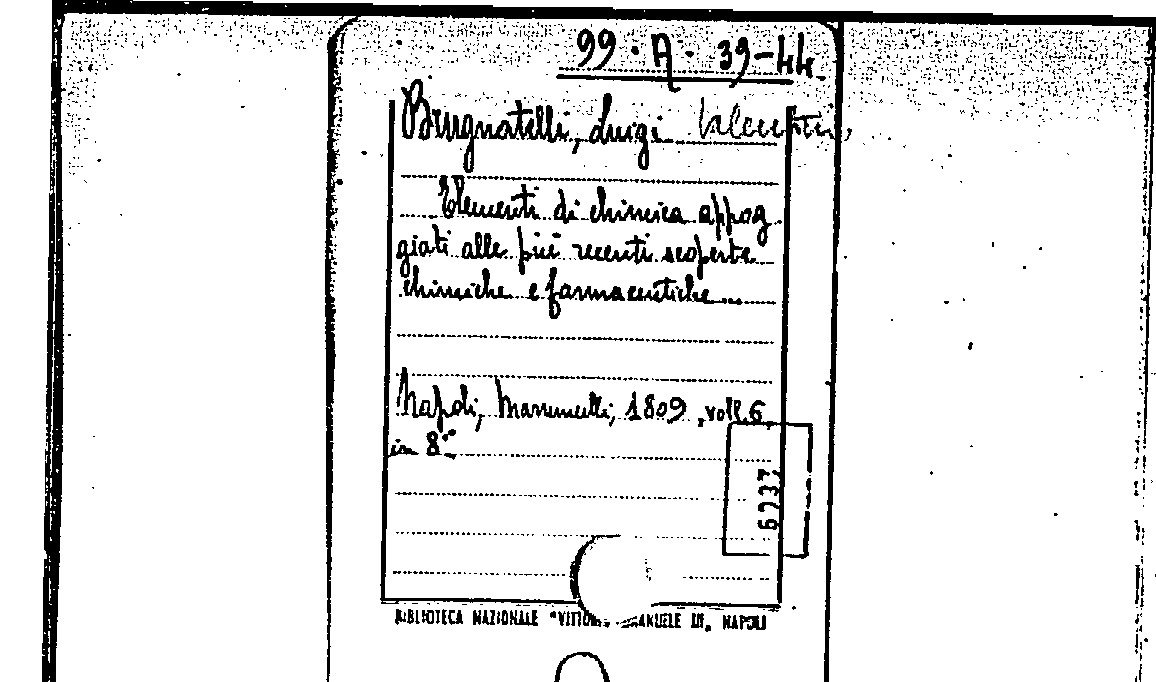 99 · A · 39-44
Brugnatelli, Luigi
Elementi di chimica appog
giati alle più recenti scoperte
chimiche e farmaceutiche...
Napoli, 1809, voll. 6,
in 8°
6737
BIBLIOTECA NAZIONALE NAPOLI